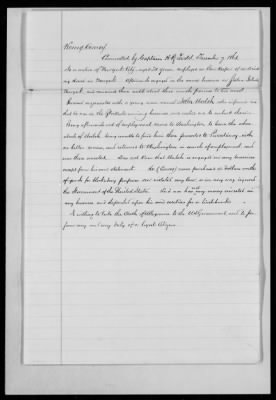 Henry Conroy
Committed by Captain H. B. Todd, December 9, 1862
Is a native of New York City, aged 20 years, employed as Bar Keeper at various
times in New York. Afterwards engaged in the same business in John Street
New York, and removed from until about three months previous to his arrest.
Became acquainted with a young man named John Welch who informed me
that he was in the business and invited me to embark
Being afterwards out of employment came to Washington to learn the where
abouts of Welch. Being unable to find him then proceeded to
no better success, and returned to Washington in search of employment and
was then arrested. Does not know that Welch is engaged in any business
except from his own statement. He (Conroy) never purchased a dollars worth
of goods for blockading purposes nor violated any law, or in any way injured
the Government of the United States. And has not any money invested in
any business and depended upon his own exertions for a livelihood.
Is willing to take the Oath of Allegiance to the US Government and to per-
form any and every duty of a loyal citizen.